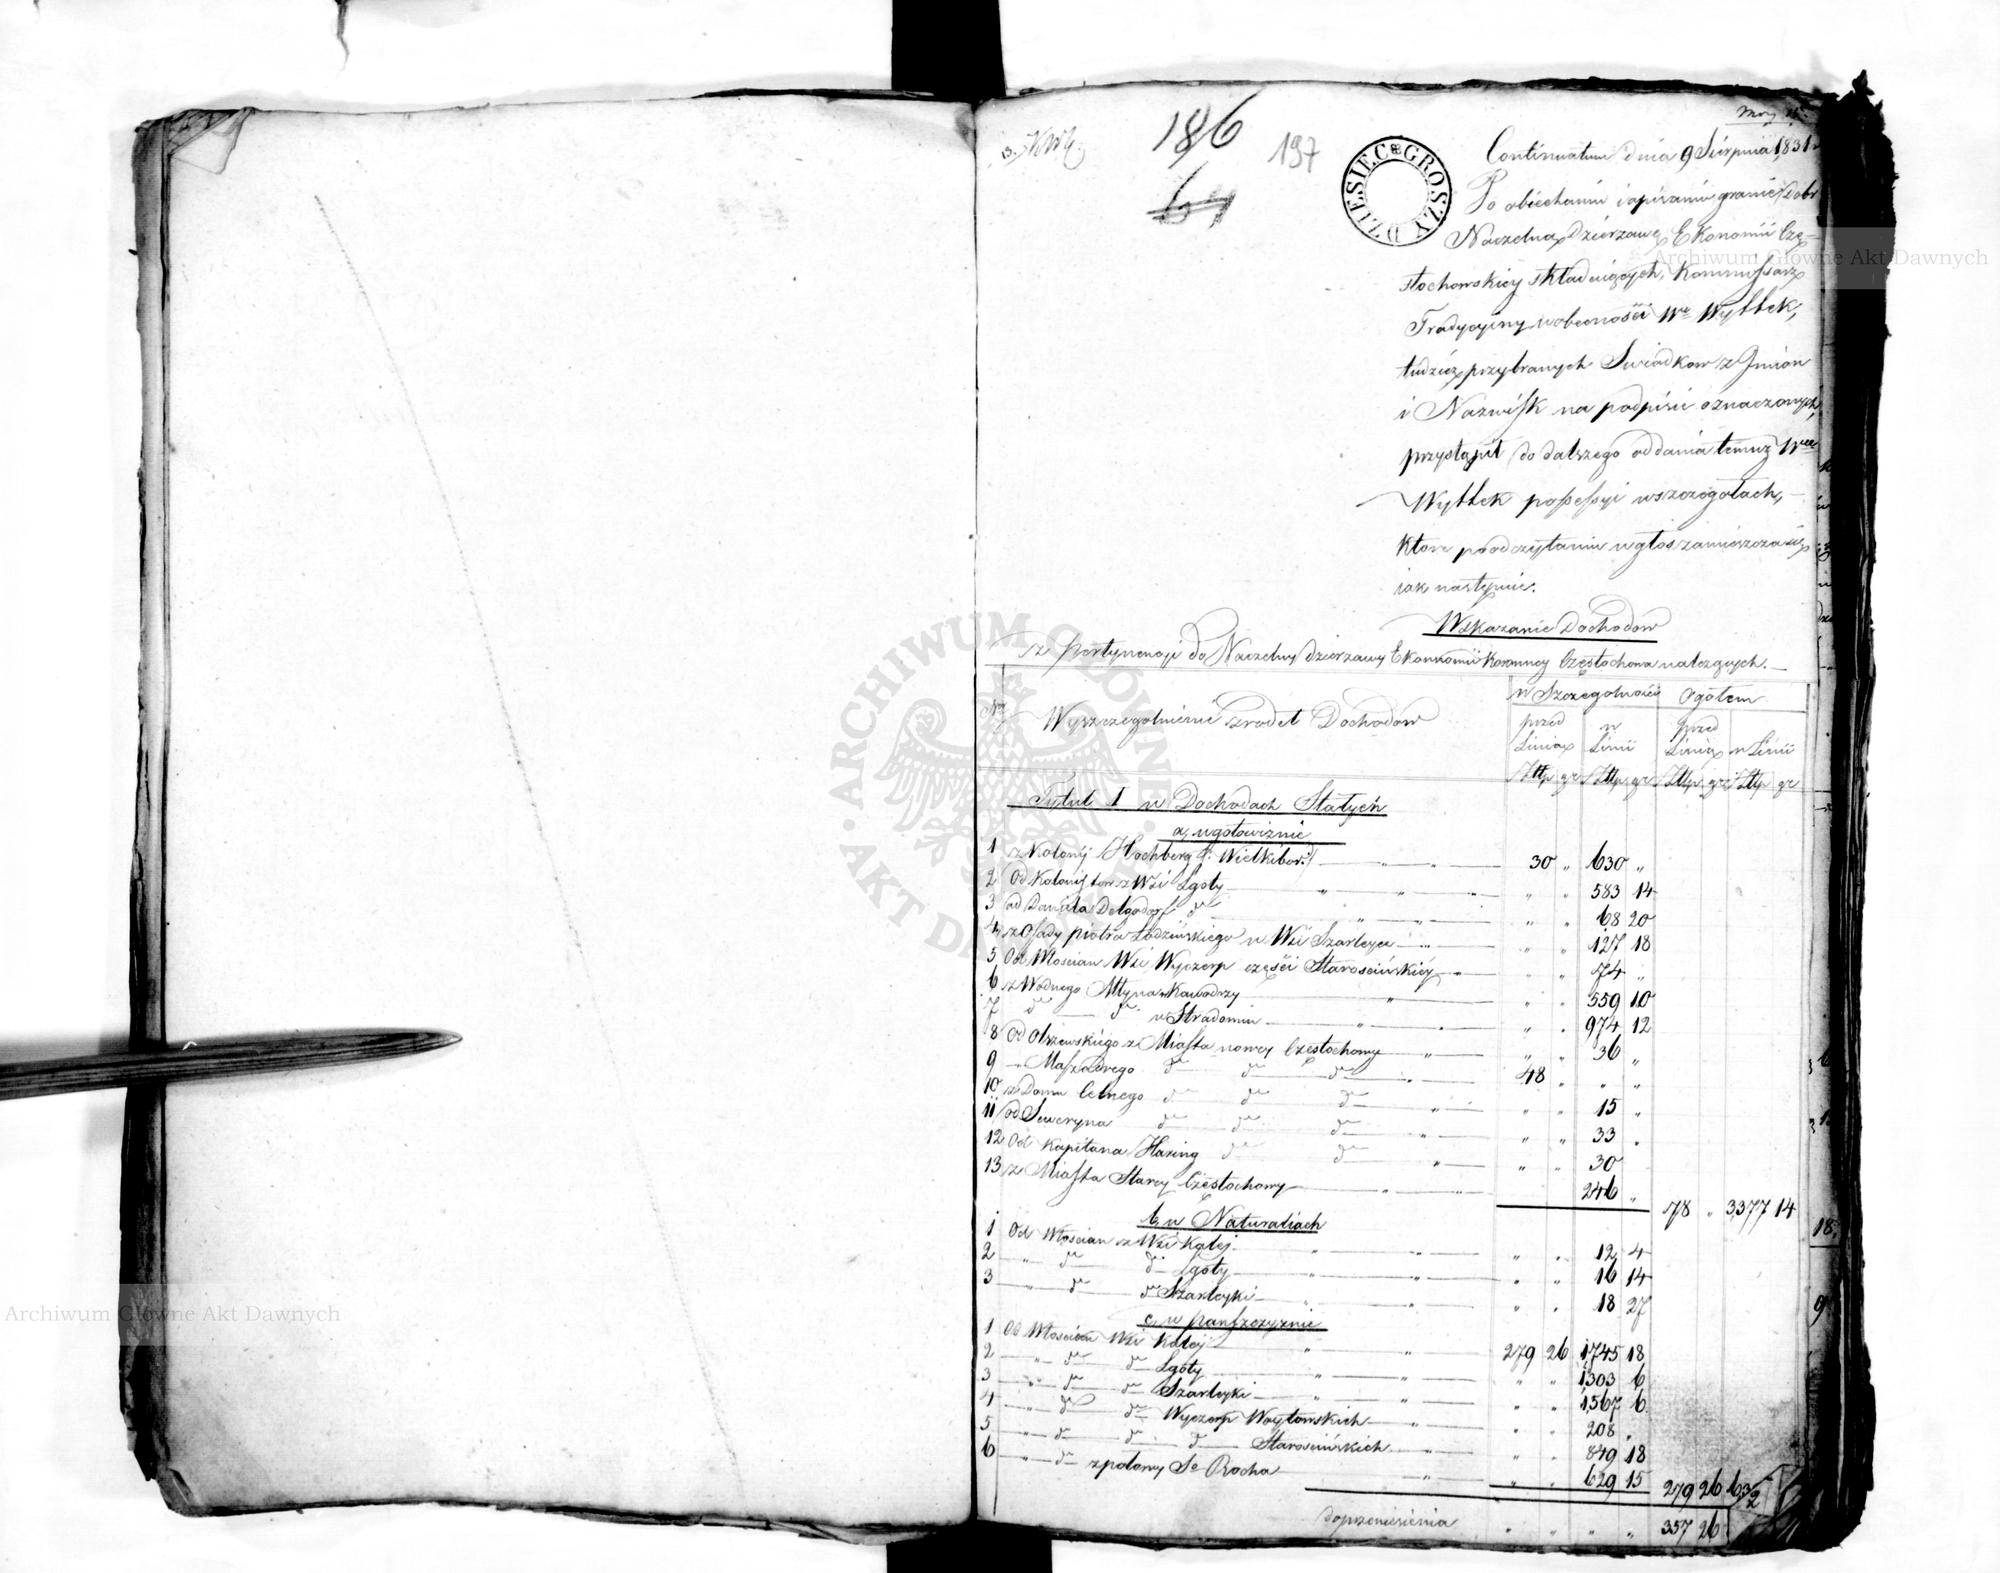 186
197
64
DZIESIĘĆ GROSZY
Continuatum dnia 9 Sierpnia 1831
Po obiechaniu i opisaniu granic dobr
Naczelną dzierzawę Ekonomii Czę-
stochowskiey składaiących, Kommissarz
Tradycyiny w obecności Wo Wyssek,
tudzież przybranych Swiadkow z Imion
i Nazwisk na podpisie oznaczonych,
przystąpił do dalszego oddania temuż
Wyssek possessyi w szczegołach,
ktore po odczytaniu w głos zamieszcza się
iak następuie.
Wskazanie Dochodow
z Pertynencyi do Naczelney dzierzawy Ekonomii Koronney Częstochowa należących.
No Wyszczegolnienie źrodeł Dochodow w Szczegolności Ogołem
przed Linią w Linii przed Linią w Linii
Złtp gr Złtp gr Złtp gr Złtp gr
Tytuł I w Dochodach Stałych
a, w gotowiznie
1 z Kolonij Hochberg /: Wielkibor :/ 30 " 630 "
2 Od Kolonistow z Wsi Lgoty " " 583 14
3 od Daniela Delgodorf do " " 68 20
4 z Osady Piotra Łodzińskiego w Wsi Szarleyce " " 127 18
5 Od Włoscian Wsi Wyczerp części Starościńskiéy " " 74 "
6 z Wodnego Młyna w Kawodrzy " " 559 10
7 do do w Stradomiu " " 974 12
8 Od Olszewskiego z Miasta nowey Częstochowy " " 36 "
9 " do do do 48 " " "
10 z Domu Celnego do do do " " 15 "
11 od Seweryna do do do " " 33 "
12 Od Kapitana Haring do do " " 30
13 z Miasta Starey Częstochowy 246 "
78 " 3377 14
b, w Naturaliach
1 Od Włoscian z Wsi Kalej " " 12 4
2 " do do Lgoty " " 16 14
3 " do do Szarleyki " " 18 27
c, w Panszczyznie
1 Od Włoscian Wsi Kaley 279 26 1745 18
2 " do do Lgoty " " 1303 6
3 " do do Szarleyki " " 1567 6
4 " do do Wyczerp Woytowskich " " 208 "
5 " do do do Starościńskich " " 849 18
6 " do z połowy So Rocha " " 629 15
279 26
do przeniesienia " " " " 357 26
Archiwum Główne Akt Dawnych
Archiwum Główne Akt Dawnych
ARCHIWUM GŁÓWNE AKT DAWNYCH